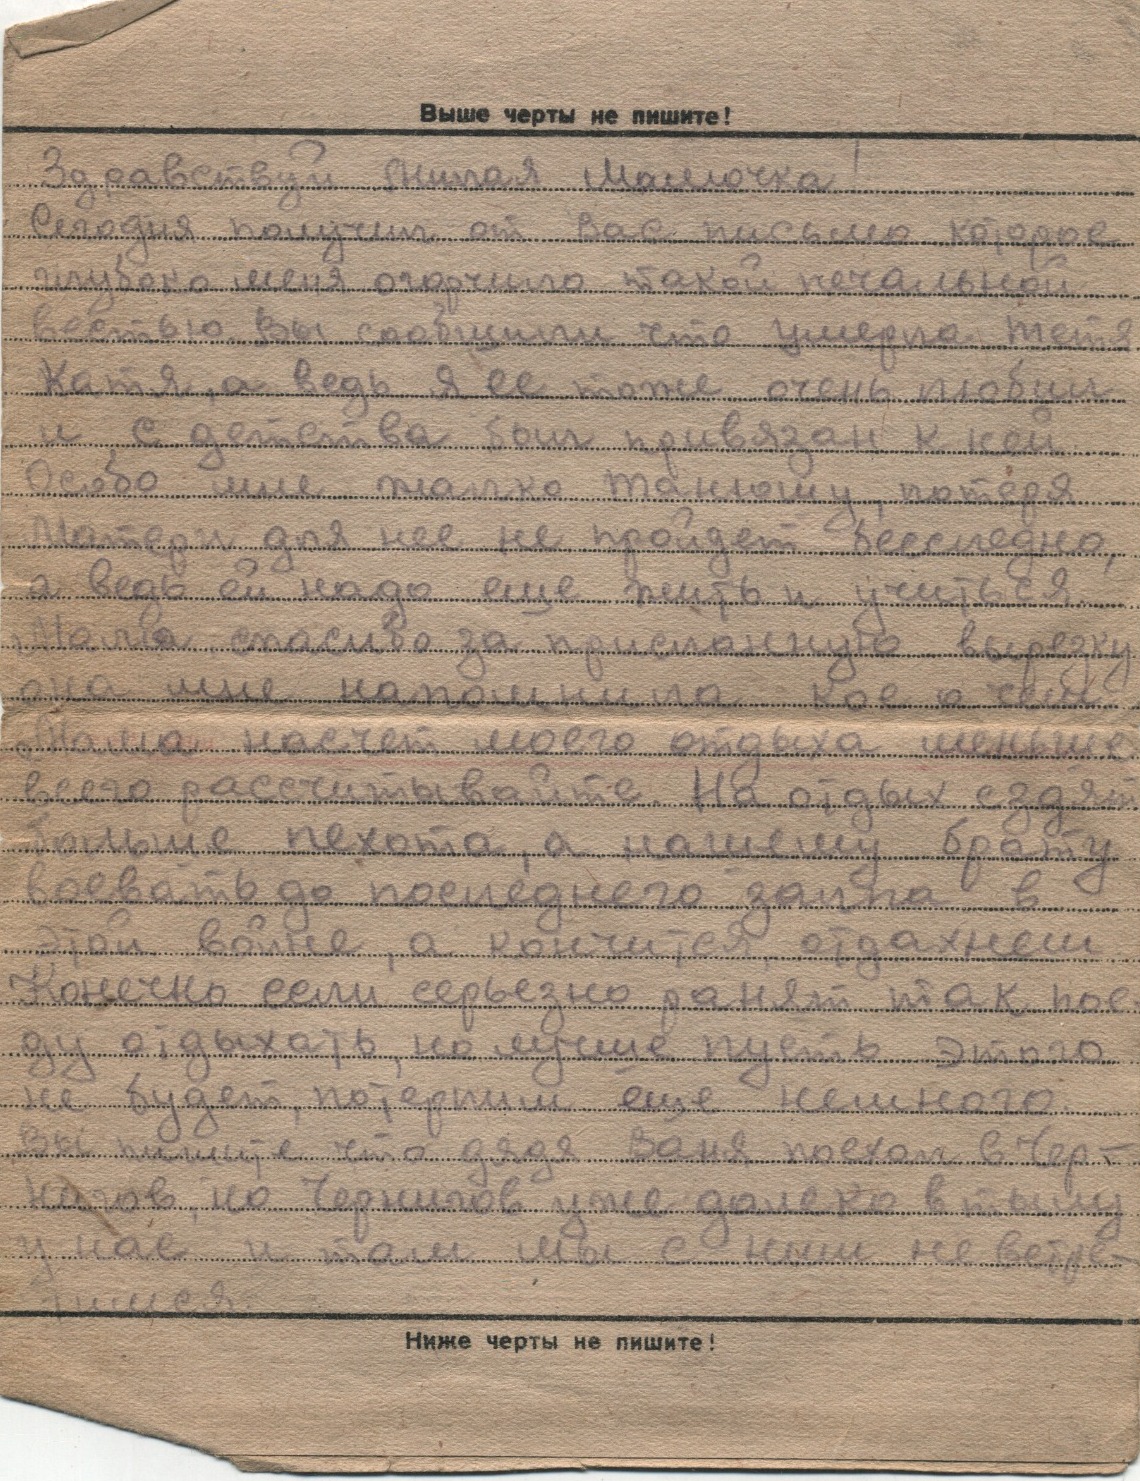 Выше черты не пишите!
Здравствуй милая Мамочка!
Сегодня получил от Вас письмо которое
глубоко меня огорчило такой печальной
вестью. Вы сообщили что умерла тетя
Катя, а ведь я ее тоже очень любил
и с детства был привязан к ней
Особо мне жалко Танюшу, потеря
Матери для нее не пройдет бесследно,
а ведь ей надо еще жить и учиться.
Мама спасибо за присланную вырезку
она мне напомнила кое о чем.
Мама насчет моего отдыха меньше
всего рассчитывайте. На отдых ездят
больше пехота, а нашему брату
воевать до последнего залпа в
этой войне, а кончится, отдахнем
Конечно если серьезно ранят так пое
ду отдыхать, но лучше пусть этого
не будет, потерпим еще немного.
Вы пишите что дядя Ваня поехал в Чер-
нигов, но Чернигов уже далеко в тылу
у нас и там мы с ним не встре-
тимся.
Ниже черты не пишите!